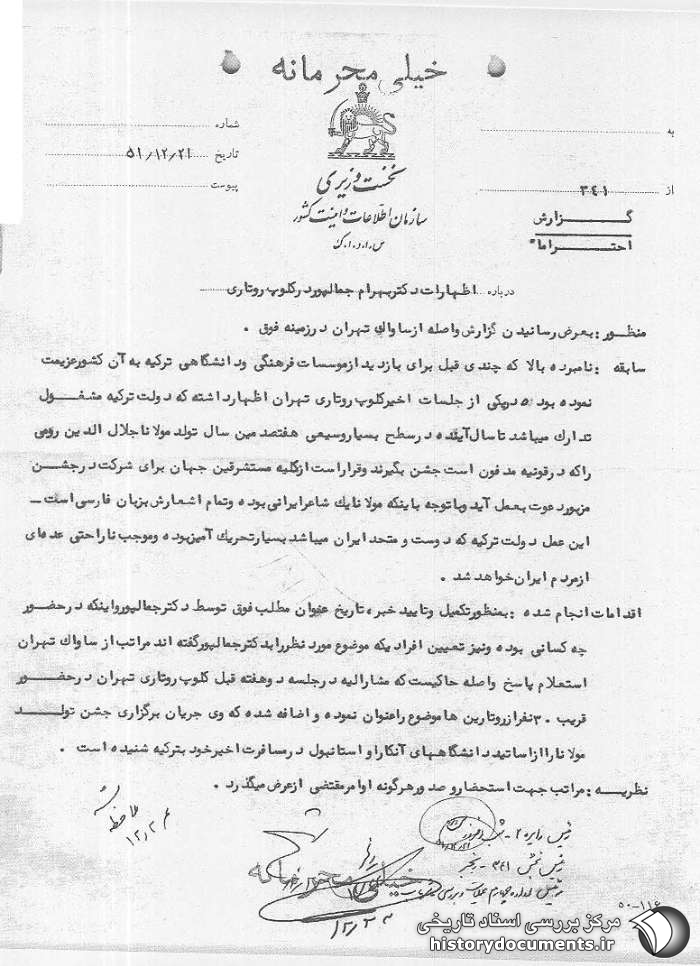 خیلی محرمانه
به
از ۳۴۱
شماره
تاریخ ۵۱/۱۲/۲۱
پیوست
نخست وزیری
سازمان اطلاعات و امنیت کشور
س.ا.و.ا.ک
گزارش
احتراما"
درباره اظهارات دکتر بهرام جمالپور در کلوپ روتاری
منظور : بعرض رسانیدن گزارش واصله از ساواک تهران در زمینه فوق .
سابقه : نامبرده بالا که چندی قبل برای بازدید از موسسات فرهنگی و دانشگاهی ترکیه به آن کشور عزیمت
نموده بود در یکی از جلسات اخیر کلوپ روتاری تهران اظهار داشته که دولت ترکیه مشغول
تدارک میباشد تا سال آینده در سطح بسیار وسیعی هفتصدمین سال تولد مولانا جلال الدین رومی
را که در قونیه مدفون است جشن بگیرند و قرار است از کلیه مستشرقین جهان برای شرکت در جشن
مزبور دعوت بعمل آید و با توجه باینکه مولانا یک شاعر ایرانی بوده و تمام اشعارش بزبان فارسی است ـ
این عمل دولت ترکیه که دوست و متحد ایران میباشد بسیار تحریک آمیز بوده و موجب ناراحتی عده ای
از مردم ایران خواهد شد .
اقدامات انجام شده : بمنظور تکمیل و تایید خبر ، تاریخ عنوان مطلب فوق توسط دکتر جمالپور و اینکه در حضور
چه کسانی بوده و نیز تعیین افرادیکه موضوع مورد نظر را بدکتر جمالپور گفته اند مراتب از ساواک تهران
استعلام پاسخ واصله حاکیست که مشارالیه در جلسه دو هفته قبل کلوپ روتاری تهران در حضور
قریب ۳۰ نفر از روتارین ها موضوع را عنوان نموده و اضافه شده که وی جریان برگزاری جشن تولد
مولانا را از اساتید دانشگاههای آنکارا و استانبول در مسافرت اخیر خود بترکیه شنیده است .
نظریه : مراتب جهت استحضار و صدور هرگونه اوامر مقتضی از عرض میگذرد .
ملاحظه شد
۱۲/۲۳
رئیس بخش ۳۴۱ - رنجبر
خیلی محرمانه
۱۲/۲۲
۵۰-۱۱۶
مرکز بررسی اسناد تاریخی
historydocuments.ir